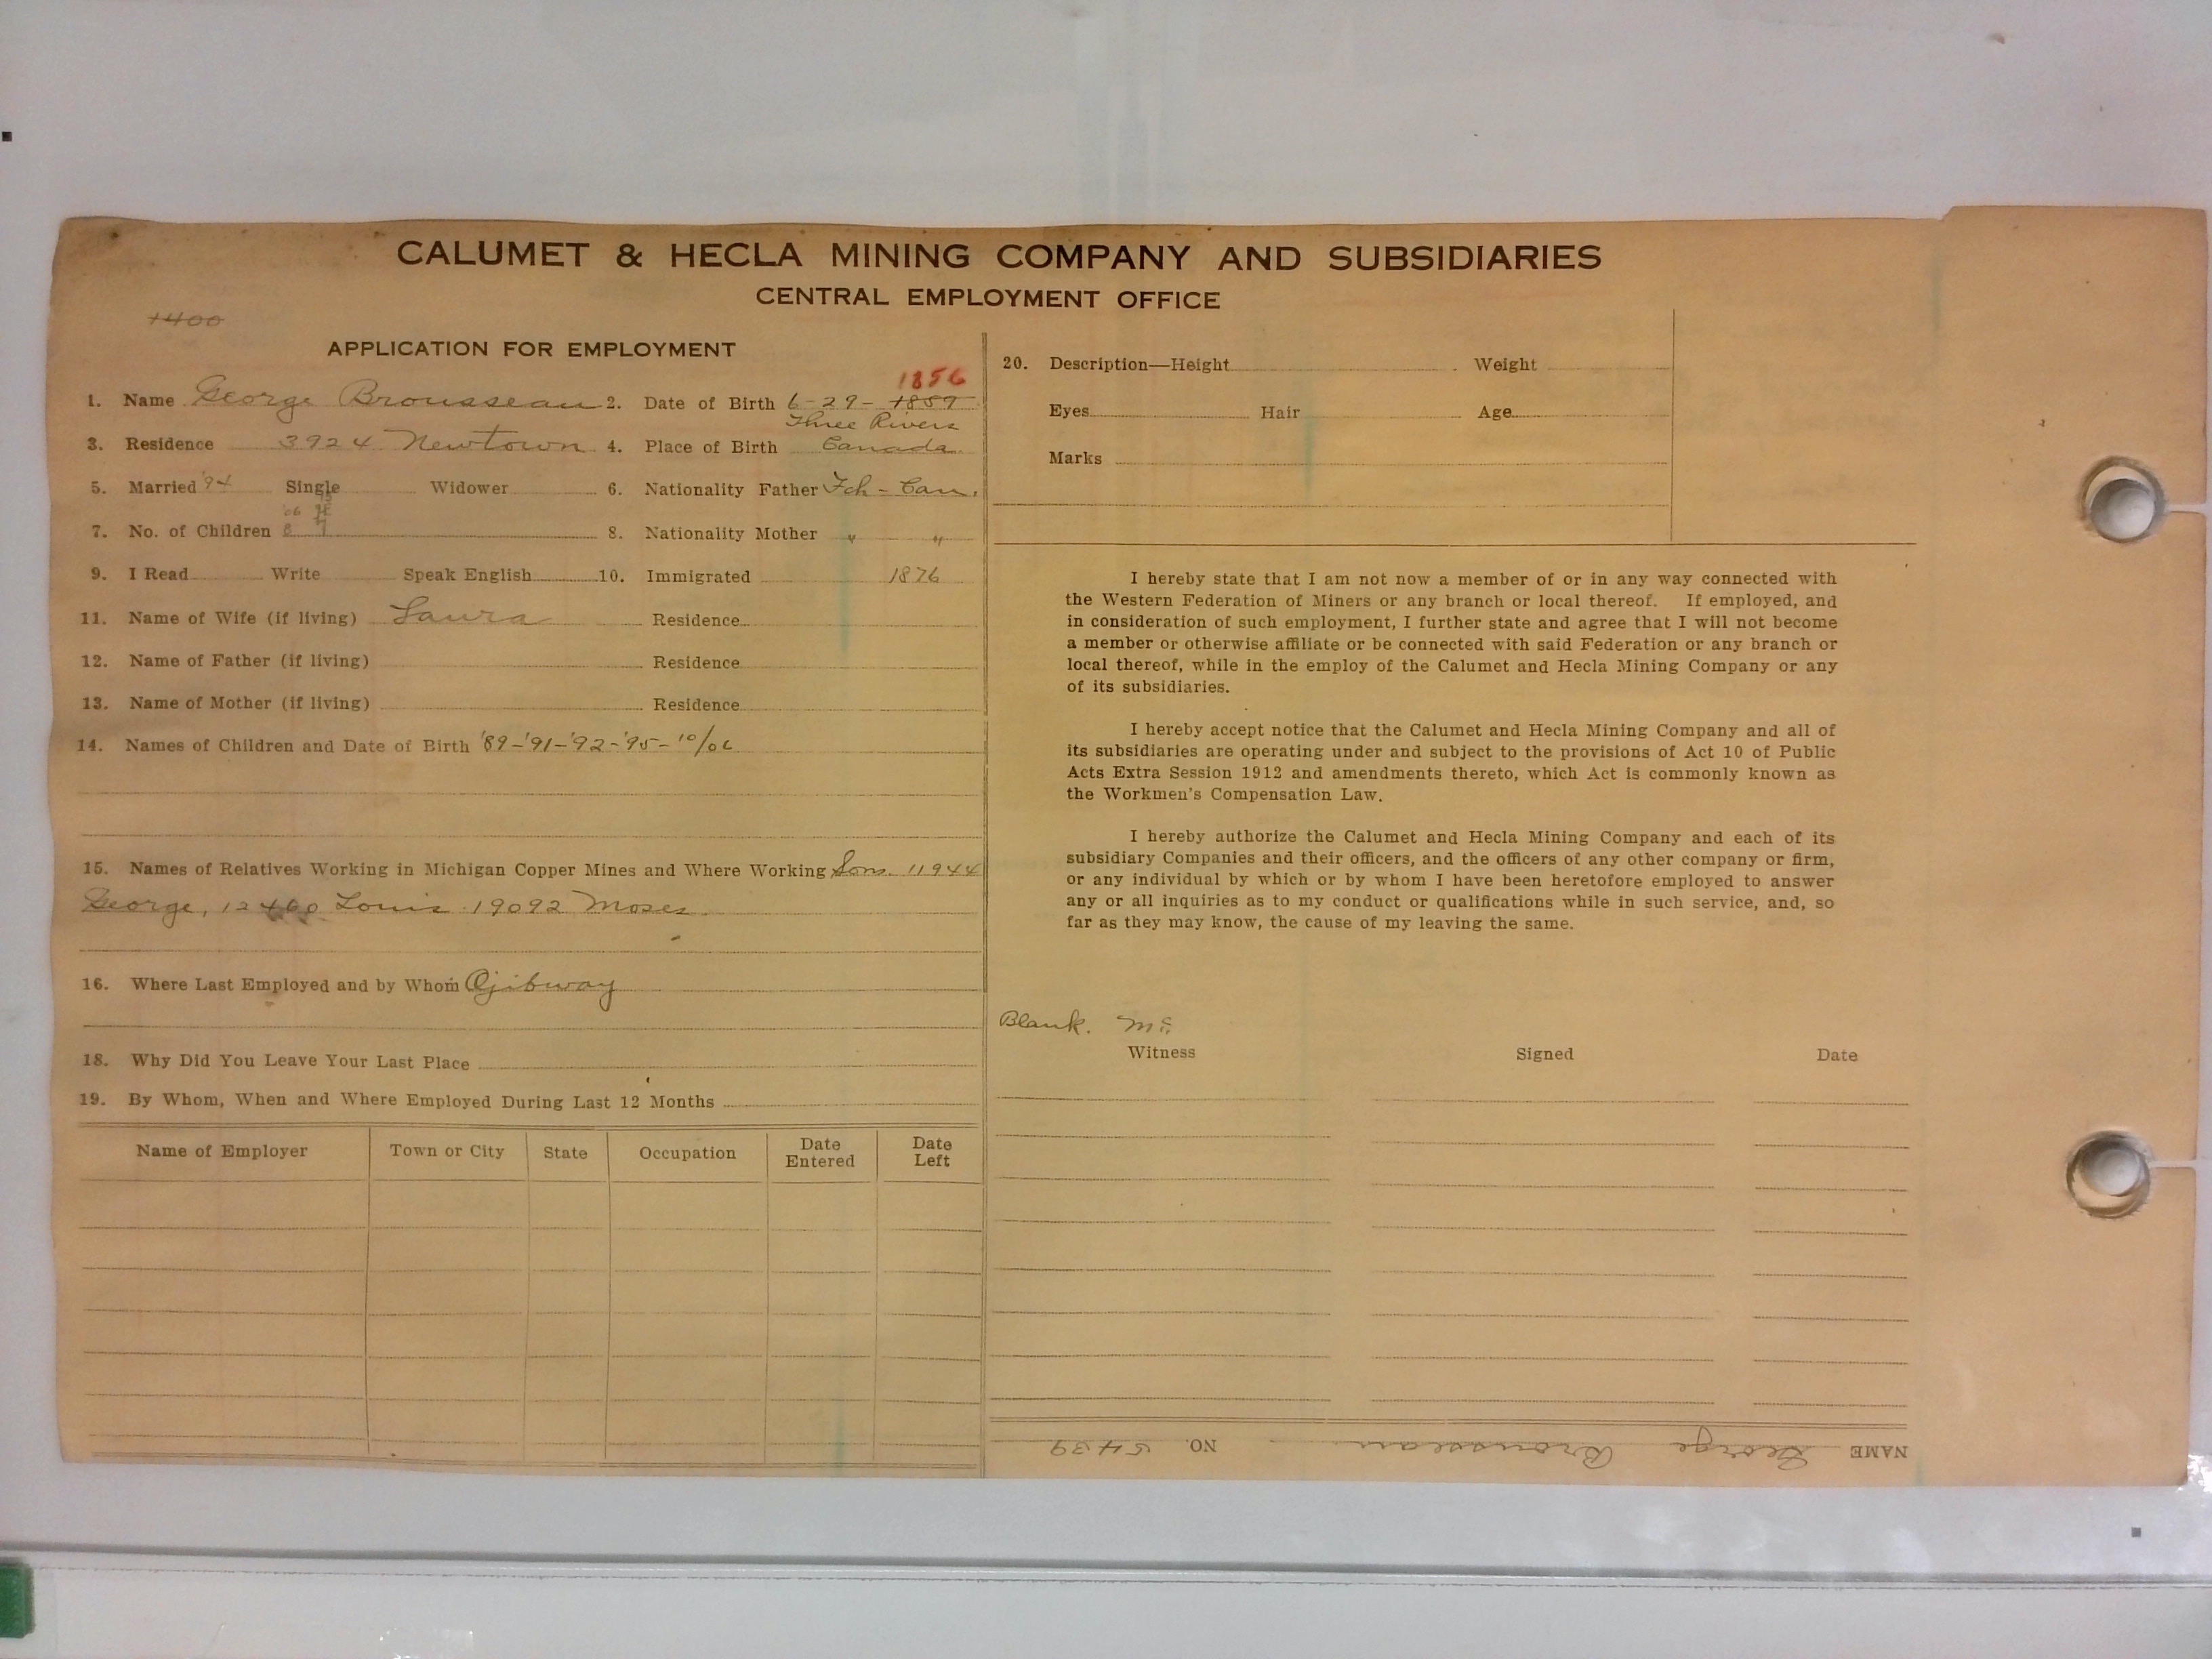 CALUMET & HECLA MINING COMPANY AND SUBSIDIARIES
CENTRAL EMPLOYMENT OFFICE
1400
APPLICATION FOR EMPLOYMENT
1856
1. Name George Brousseau 2. Date of Birth 6-29-1857
Three Rivers
3. Residence 3924 Newtown 4. Place of Birth Canada
5. Married '94 Single Widower 6. Nationality Father Fch-Can.
7. No. of Children 8 7 8. Nationality Mother " "
'06
9. I Read Write Speak English 10. Immigrated 1876
11. Name of Wife (if living) Laura Residence
12. Name of Father (if living) Residence
13. Name of Mother (if living) Residence
14. Names of Children and Date of Birth '89-'91-'92-'95-10/06
15. Names of Relatives Working in Michigan Copper Mines and Where Working Sons. 11944
George, 12460 Louis 19092 Moses
16. Where Last Employed and by Whom Ojibway
18. Why Did You Leave Your Last Place
19. By Whom, When and Where Employed During Last 12 Months
Name of Employer Town or City State Occupation Date Entered Date Left
20. Description—Height Weight
Eyes Hair Age
Marks
I hereby state that I am not now a member of or in any way connected with
the Western Federation of Miners or any branch or local thereof. If employed, and
in consideration of such employment, I further state and agree that I will not become
a member or otherwise affiliate or be connected with said Federation or any branch or
local thereof, while in the employ of the Calumet and Hecla Mining Company or any
of its subsidiaries.
I hereby accept notice that the Calumet and Hecla Mining Company and all of
its subsidiaries are operating under and subject to the provisions of Act 10 of Public
Acts Extra Session 1912 and amendments thereto, which Act is commonly known as
the Workmen's Compensation Law.
I hereby authorize the Calumet and Hecla Mining Company and each of its
subsidiary Companies and their officers, and the officers of any other company or firm,
or any individual by which or by whom I have been heretofore employed to answer
any or all inquiries as to my conduct or qualifications while in such service, and, so
far as they may know, the cause of my leaving the same.
Blank.
Witness Signed Date
NAME George Brousseau NO. 5439